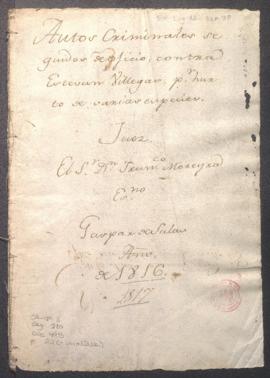 Autos Criminales se
guidos de oficio, contra
Estevan Villegas, pr. hur
to de varias especies.
Juez
El Sr. Dn. Franco. Moreyra
Esno
Gaspar de Salas
Año
de 1816
1817